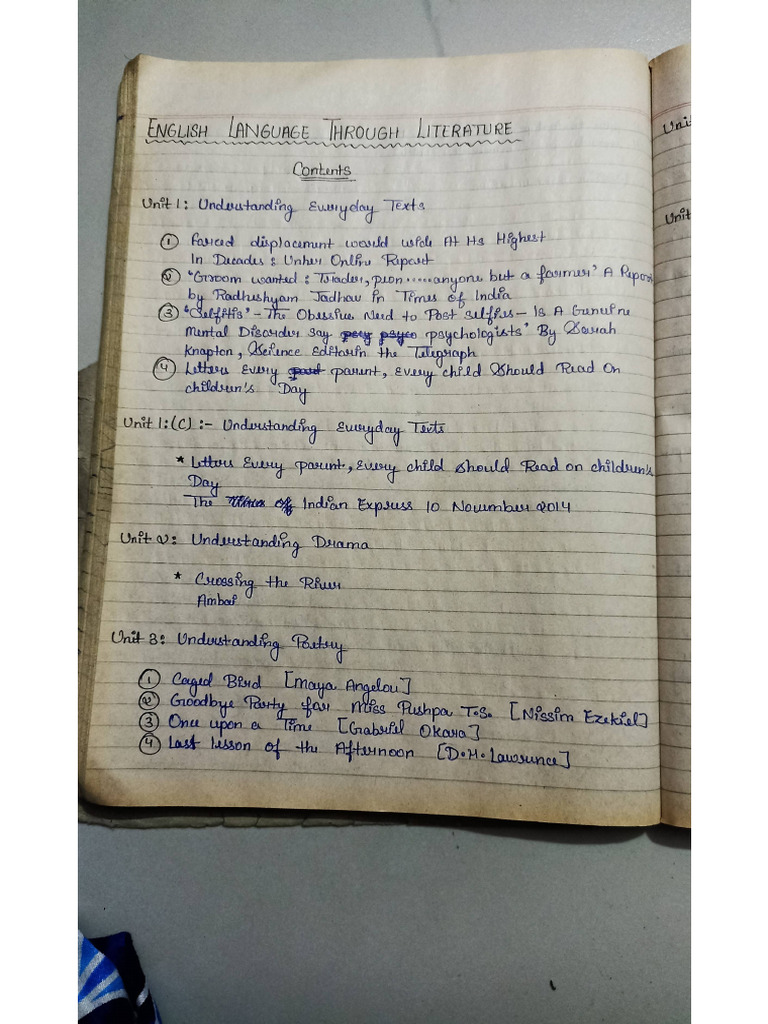 ENGLISH LANGUAGE THROUGH LITERATURE
Contents
Unit 1: Understanding Everyday Texts
① Forced displacement world wide At Its Highest
In Decades: Unher Online Report
② "Groom wanted: Trader, peon.....anyone but a farmer' A Report
by Radheshyam Jadhav in Times of India
③ 'Selfitis' - The Obessive Need to Post selfies - Is A Genuine
Mental Disorder say psychologists' By Sarah
Knapton, Science Editorin the Telegraph
④ Letters Every parent, Every child Should Read On
children's Day
Unit 1:(C) :- Understanding Everyday Texts
* Letters Every parent, Every child should Read on children's
Day
The Indian Express 10 November 2014
Unit 2: Understanding Drama
* Crossing the River
Ambai
Unit 3: Understanding Poetry
① Caged Bird [Maya Angelou]
② Goodbye Party for Miss Pushpa T.S. [Nissim Ezekiel]
③ Once upon a Time [Gabriel Okara]
④ Last lesson of the Afternoon [D.H. Lawrence]
Unit
Unit